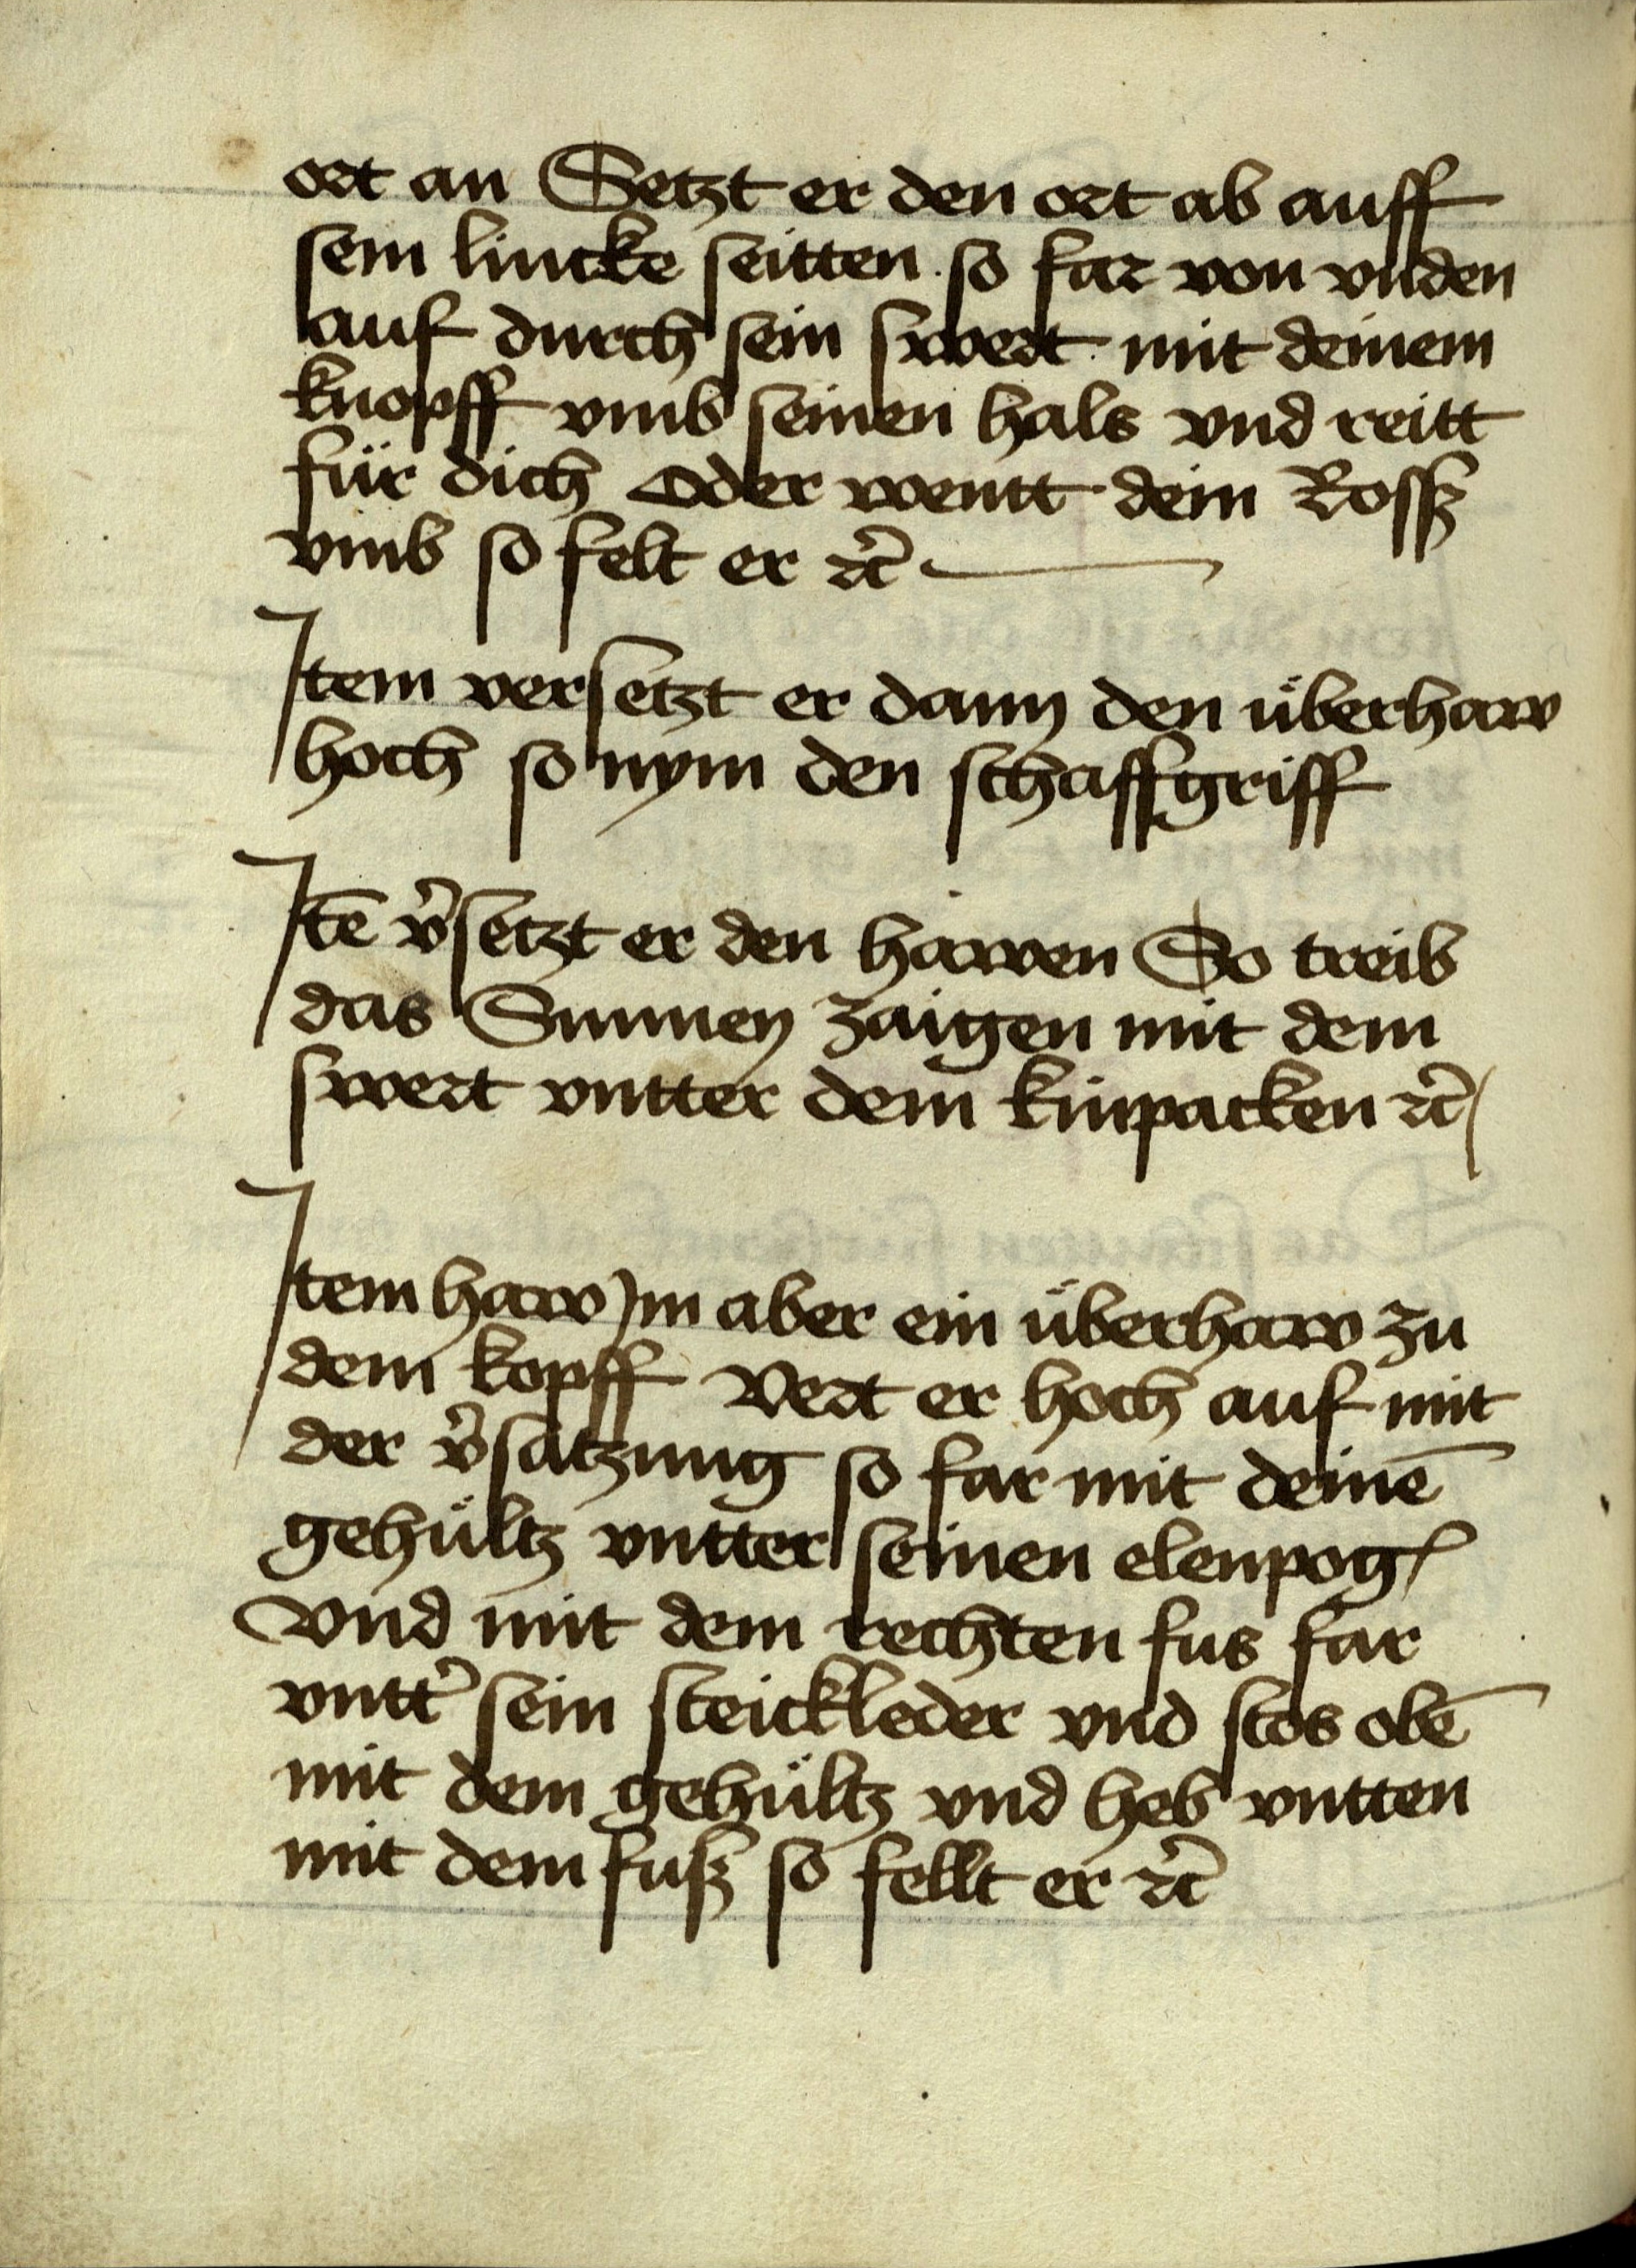 ort an Setzt er den ort ab auff
sein lincke seitten . so far von vnden
auf durch sein swert mit deinem
knopff vmb seinen hals vnd reitt
für dich Oder wentt dein Rossz
vmb so felt er ꝛc̄
Item versetzt er dann den überhaw
hoch so nym den schaffgriff
Itē v̾setzt er den hawen So treib
das Sunnen zaigen mit dem
swert vntter dem kinpacken ꝛc̄
Item haw Jm aber ein überhaw zu
dem kopff Vert er hoch auf mit
der v̾satzung so far mit deinē
gehültz vntter seinen elenpogꝭ
Vnd mit dem rechten fus far
vntt̾ sein steickleder vnd stos obē
mit dem gehültz vnd heb vntten
mit dem fusz so fellt er ꝛc̄